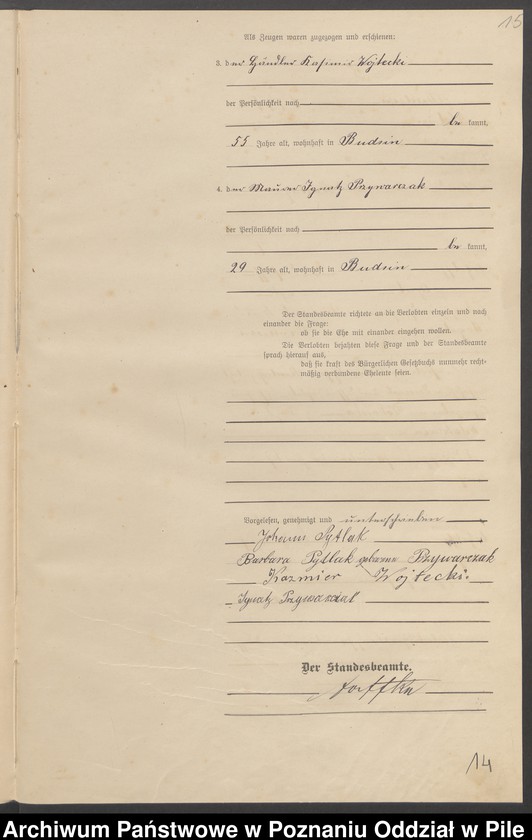 15
Als Zeugen waren zugezogen und erschienen:
3. der Händler Kasimir Wojtecki
der Persönlichkeit nach
be kannt,
55 Jahre alt, wohnhaft in Budsin
4. der Maurer Ignatz Przywarczak
der Persönlichkeit nach
be kannt,
29 Jahre alt, wohnhaft in Budsin
Der Standesbeamte richtete an die Verlobten einzeln und nach
einander die Frage:
ob sie die Ehe mit einander eingehen wollen.
Die Verlobten bejahten diese Frage und der Standesbeamte
sprach hierauf aus,
daß sie kraft des Bürgerlichen Gesetzbuchs nunmehr recht-
mäßig verbundene Eheleute seien.
Vorgelesen, genehmigt und unterschrieben
Johann Pytlak
Barbara Pytlak geborene Przywarczak
Kazmier Wojtecki.
Ignatz
Der Standesbeamte.
14
Archiwum Państwowe w Poznaniu Oddział w Pile